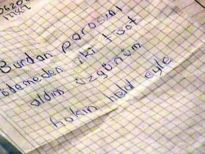 Burdan parasız
ödemeden iki tost
aldım üzgünüm
hakın helal eyle